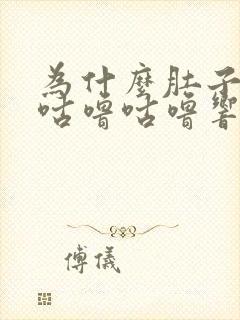 為什麼肚子
咕嚕咕嚕響
傅儀